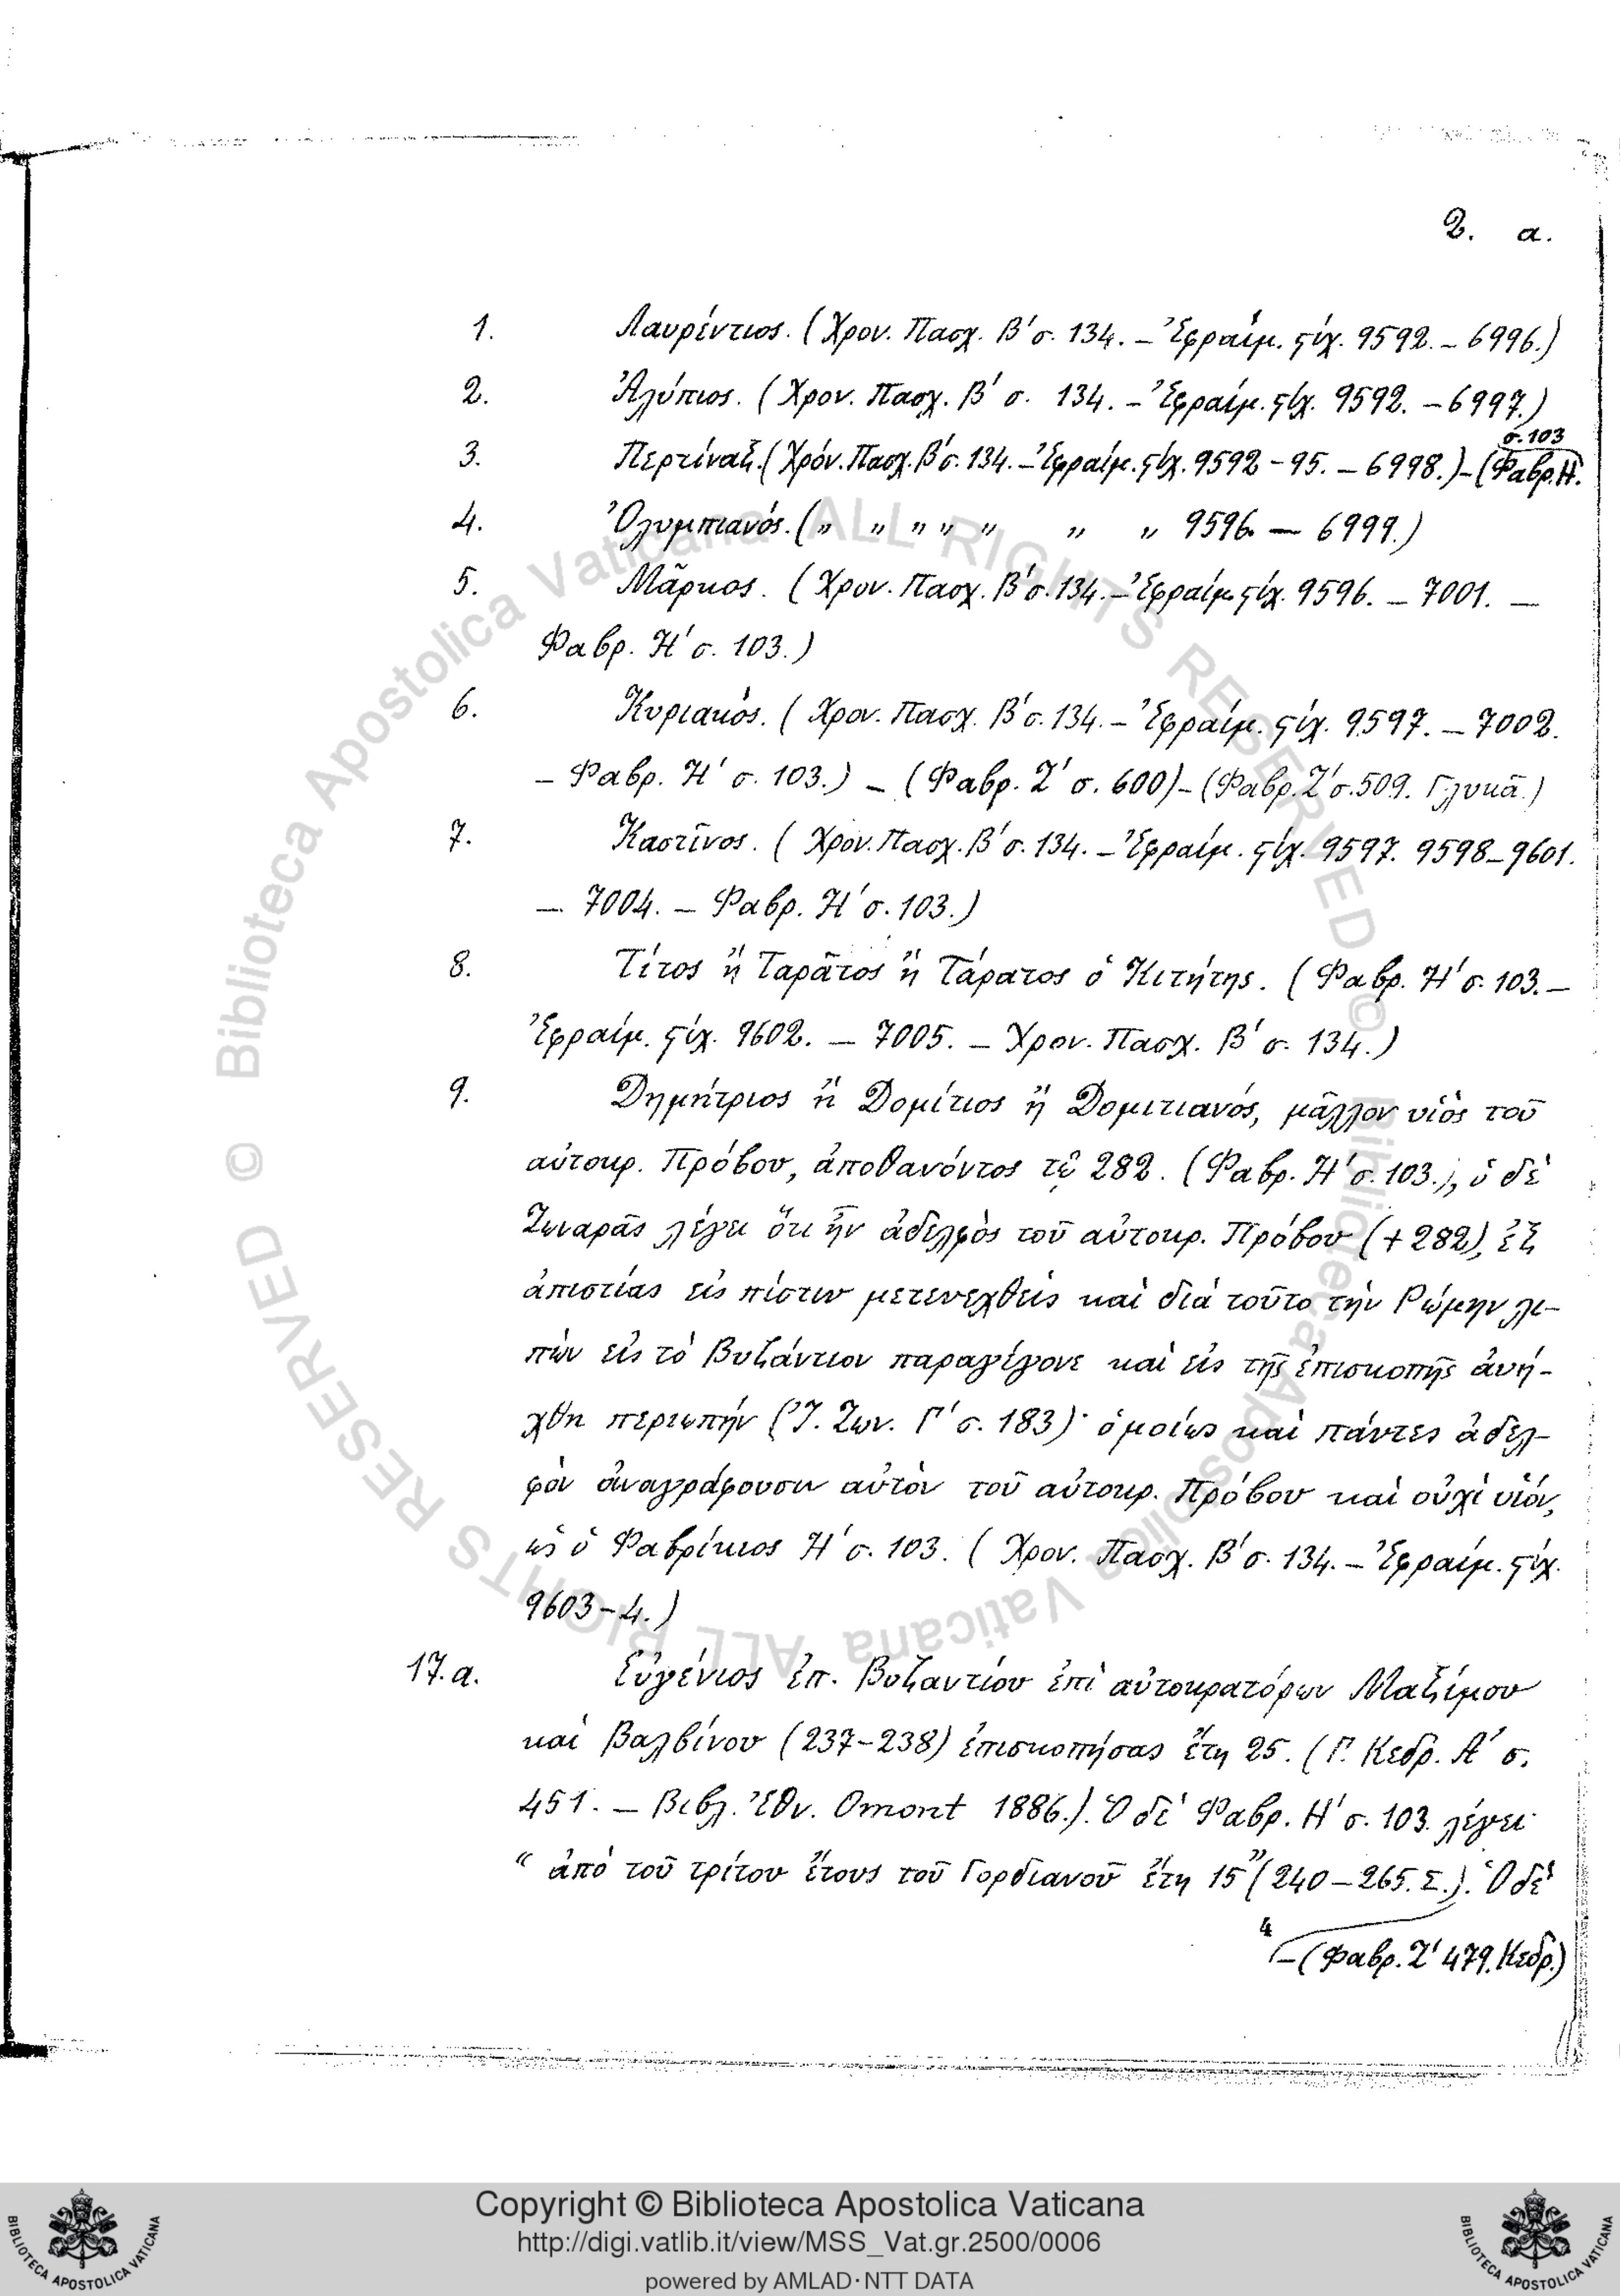 2. α.
1. Λαυρέντιος. (Χρον. Πασχ. Β′ σ. 134. – Ἐφραίμ. ϛίχ. 9592. – 6996.)
2. Ἀλύπιος. (Χρον. Πασχ. Β′ σ. 134. – Ἐφραίμ. ϛίχ. 9592. – 6997.)
σ. 103
3. Περτίναξ. (Χρόν. Πασχ. Β′ σ. 134. – Ἐφραίμ. ϛίχ. 9592 – 95. – 6998.) – (Φαβρ. Η′.
4. Ὀλυμπιανός. (" " " " " " " 9596. — 6999.)
5. Μᾶρκος. (Χρον. Πασχ. Β′ σ. 134. – Ἐφραίμ. ϛίχ. 9596. – 7001. –
Φαβρ. Η′ σ. 103.)
6. Κυριακὸς. (Χρον. Πασχ. Β′ σ. 134. – Ἐφραίμ. ϛίχ. 9597. – 7002.
– Φαβρ. Η′ σ. 103.) – (Φαβρ. Ζ′ σ. 600) – (Φαβρ. Ζ′ σ. 509. Γλυκᾶ.)
7. Καστῖνος. (Χρον. Πασχ. Β′ σ. 134. – Ἐφραίμ. ϛίχ. 9597. 9598 – 9601.
– 7004. – Φαβρ. Η′ σ. 103.)
8. Τίτος ἢ Ταρᾶτος ἢ Τάρατος ὁ Κιτήτης. (Φαβρ. Η′ σ. 103. –
Ἐφραίμ. ϛίχ. 9602. – 7005. – Χρον. Πασχ. Β′ σ. 134.)
9. Δημήτριος ἢ Δομίτιος ἢ Δομιτιανός, μᾶλλον υἱὸς τοῦ
αὐτοκρ. Πρόβου, ἀποθανόντος τῷ 282. (Φαβρ. Η′ σ. 103.), ὁ δὲ
Ζωναρᾶς λέγει ὅτι ἦν ἀδελφὸς τοῦ αὐτοκρ. Πρόβου (+ 282), ἐξ
ἀπιστίας εἰς πίστιν μετενεχθεὶς καὶ διὰ τοῦτο τὴν Ρώμην λι-
πὼν εἰς τὸ Βυζάντιον παραγέγονε καὶ εἰς τῆς ἐπισκοπῆς ἀνή-
χθη περιωπήν (Ἰ. Ζων. Γ′ σ. 183)· ὁμοίως καὶ πάντες ἀδελ-
φὸν ἀναγράφουσιν αὐτὸν τοῦ αὐτοκρ. Πρόβου καὶ οὐχὶ υἱόν,
ὡς ὁ Φαβρίκιος Η′ σ. 103. (Χρον. Πασχ. Β′ σ. 134. – Ἐφραίμ. ϛίχ.
9603 – 4.)
17. α. Εὐγένιος ἐπ. Βυζαντίου ἐπὶ αὐτοκρατόρων Μαξίμου
καὶ Βαλβίνου (237 – 238) ἐπισκοπήσας ἔτη 25. (Γ. Κεδρ. Α′ σ.
451. – Βιβλ. Ἐθν. Omont 1886.). Ὁ δὲ Φαβρ. Η′ σ. 103. λέγει
“ ἀπὸ τοῦ τρίτου ἔτους τοῦ Γορδιανοῦ ἔτη 15” (240 – 265. Σ.). Ὁ δὲ
4 – (Φαβρ. Ζ′ 479. Κεδρ.)
© Biblioteca Apostolica Vaticana ALL RIGHTS RESERVED © Biblioteca Apostolica Vaticana ALL RIGHTS RESERVED
Copyright © Biblioteca Apostolica Vaticana
http://digi.vatlib.it/view/MSS_Vat.gr.2500/0006
powered by AMLAD·NTT DATA
BIBLIOTECA APOSTOLICA VATICANA
BIBLIOTECA APOSTOLICA VATICANA